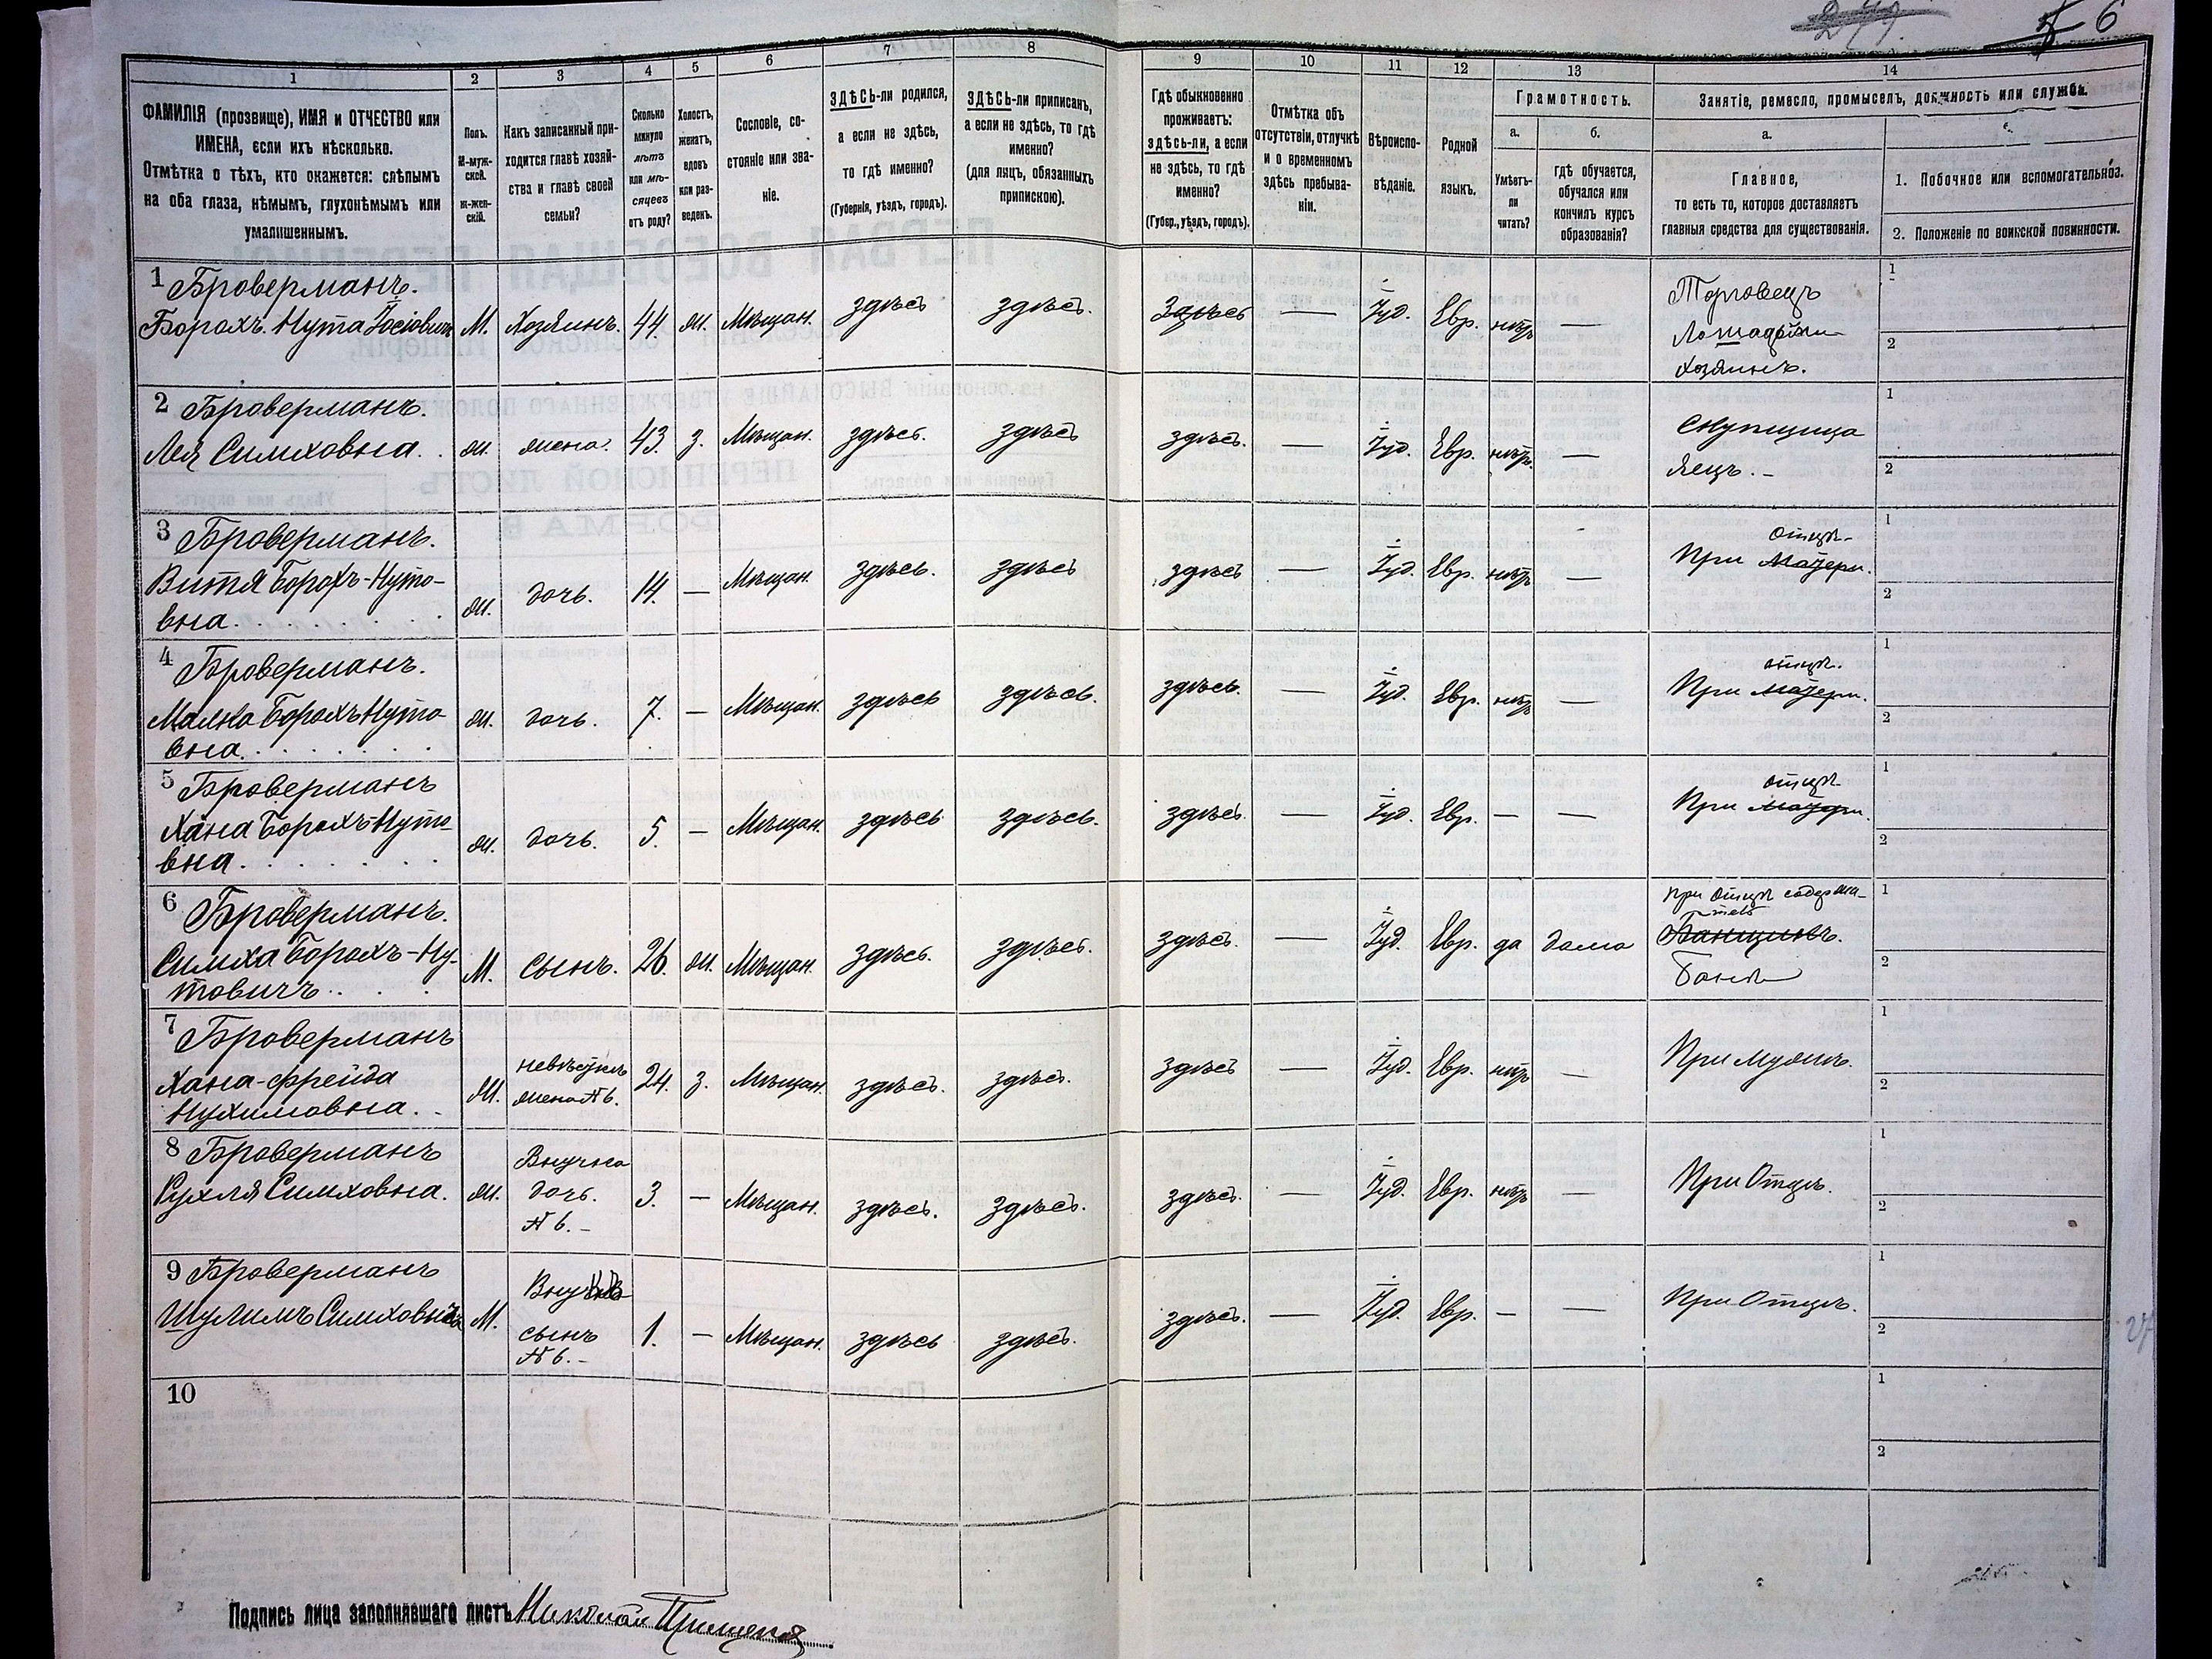 6
1
2
3
4
5
6
7
8
9
10
11
12
13
14
ФАМИЛІЯ (прозвище), ИМЯ и ОТЧЕСТВО или
ИМЕНА, если ихъ нѣсколько.
Отмѣтка о тѣхъ, кто окажется: слѣпымъ
на оба глаза, нѣмымъ, глухонѣмымъ или
умалишеннымъ.
Полъ.
М-муж-
ской.
Ж-жен-
скій.
Какъ записанный при-
ходится главѣ хозяй-
ства и главѣ своей
семьи?
Сколько
минуло
лѣтъ
или мѣ-
сяцевъ
отъ роду?
Холостъ,
женатъ,
вдовъ
или раз-
веденъ.
Сословіе, со-
стояніе или зва-
ніе.
ЗДѢСЬ-ли родился,
а если не здѣсь,
то гдѣ именно?
(Губернія, уѣздъ, городъ).
ЗДѢСЬ-ли приписанъ,
а если не здѣсь, то гдѣ
именно?
(для лицъ, обязанныхъ
припискою).
Гдѣ обыкновенно
проживаетъ:
здѣсь-ли, а если
не здѣсь, то гдѣ
именно?
(Губер., уѣздъ, городъ).
Отмѣтка объ
отсутствіи, отлучкѣ
и о временномъ
здѣсь пребыва-
ніи.
Вѣроиспо-
вѣданіе.
Родной
языкъ.
Грамотность.
а.
Умѣетъ-
ли
читать?
б.
гдѣ обучается,
обучался или
кончилъ курсъ
образованія?
Занятіе, ремесло, промыселъ, должность или служба.
а.
Главное,
то есть то, которое доставляетъ
главныя средства для существованія.
1. Побочное или вспомогательноэ.
2. Положеніе по воинской повинности.
1 Броверманъ.
Борохъ Нута Іосіовичъ М. Хозяинъ. 44. ж. Мѣщан. здѣсь здѣсь. Здѣсь — Іуд. Евр. нѣтъ — Торговецъ
Лошадьми
хозяинъ.
1
2
2 Броверманъ.
Лея Симховна. . ж. жена. 43. з. Мѣщан. здѣсь. здѣсь здѣсь. — Іуд. Евр. нѣтъ. — Скупщица
яецъ. -
1
2
3 Броверманъ.
Витя Борохъ-Нуто-
вна. ж. дочь. 14. — Мѣщан. здѣсь. здѣсь здѣсь — Іуд. Евр. нѣтъ — При отцѣ Матери.
1
2
4 Броверманъ.
Малка Борохъ Нуто
вна. ж. дочь. 7. — Мѣщан. здѣсь здѣсь. здѣсь. — Іуд. Евр. нѣтъ — При отцѣ. матери.
1
2
5 Броверманъ
Хана Борохъ-Нуто-
вна. ж. дочь. 5. — Мѣщан. здѣсь здѣсь. здѣсь. — Іуд. Евр. — — При отцѣ матери.
1
2
6 Броверманъ.
Симха Борохъ-Ну-
товичъ. М. сынъ. 26. ж. Мѣщан. здѣсь. здѣсь. здѣсь. — Іуд. Евр. да дома при отцѣ содержа-
тель
Банщикъ.
Бани
1
2
7 Броверманъ
Хана-Фрейда
Нухимовна. . М. невѣстка
жена № 6. 24. з. Мѣщан. здѣсь. здѣсь. здѣсь — Іуд. Евр. нѣтъ — При мужѣ.
1
2
8 Броверманъ
Рухля Симховна. ж. Внучка
дочь.
№ 6. - 3. — Мѣщан. здѣсь. здѣсь. здѣсь. — Іуд. Евр. нѣтъ — При Отцѣ.
1
2
9 Броверманъ
Шулимъ Симховичъ М. Внукъ
сынъ
№ 6. - 1. — Мѣщан. здѣсь здѣсь. здѣсь. — Іуд. Евр. — — При Отцѣ.
1
2
10
1
2
Подпись лица заполнявшаго листъ Николай